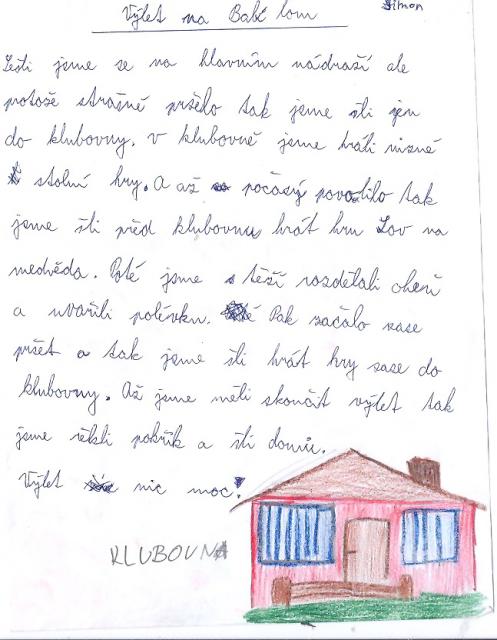 Výlet na Babí lom
Šimon
Sešli jsme se na hlavním nádraží ale
protože strašně pršelo tak jsme šli jen
do klubovny. V klubovně jsme hráli různé
stolní hry. A až počasý povolilo tak
jsme šli před klubovnu hrát hru Lov na
medvěda. Poté jsme s těží rozdělali oheň
a uvařili polévku. Pak začalo zase
pršet a tak jsme šli hrát hry zase do
klubovny. Až jsme měli skončit výlet tak
jsme řekli pokřik a šli domů.
Výlet nic moc!
KLUBOVNA